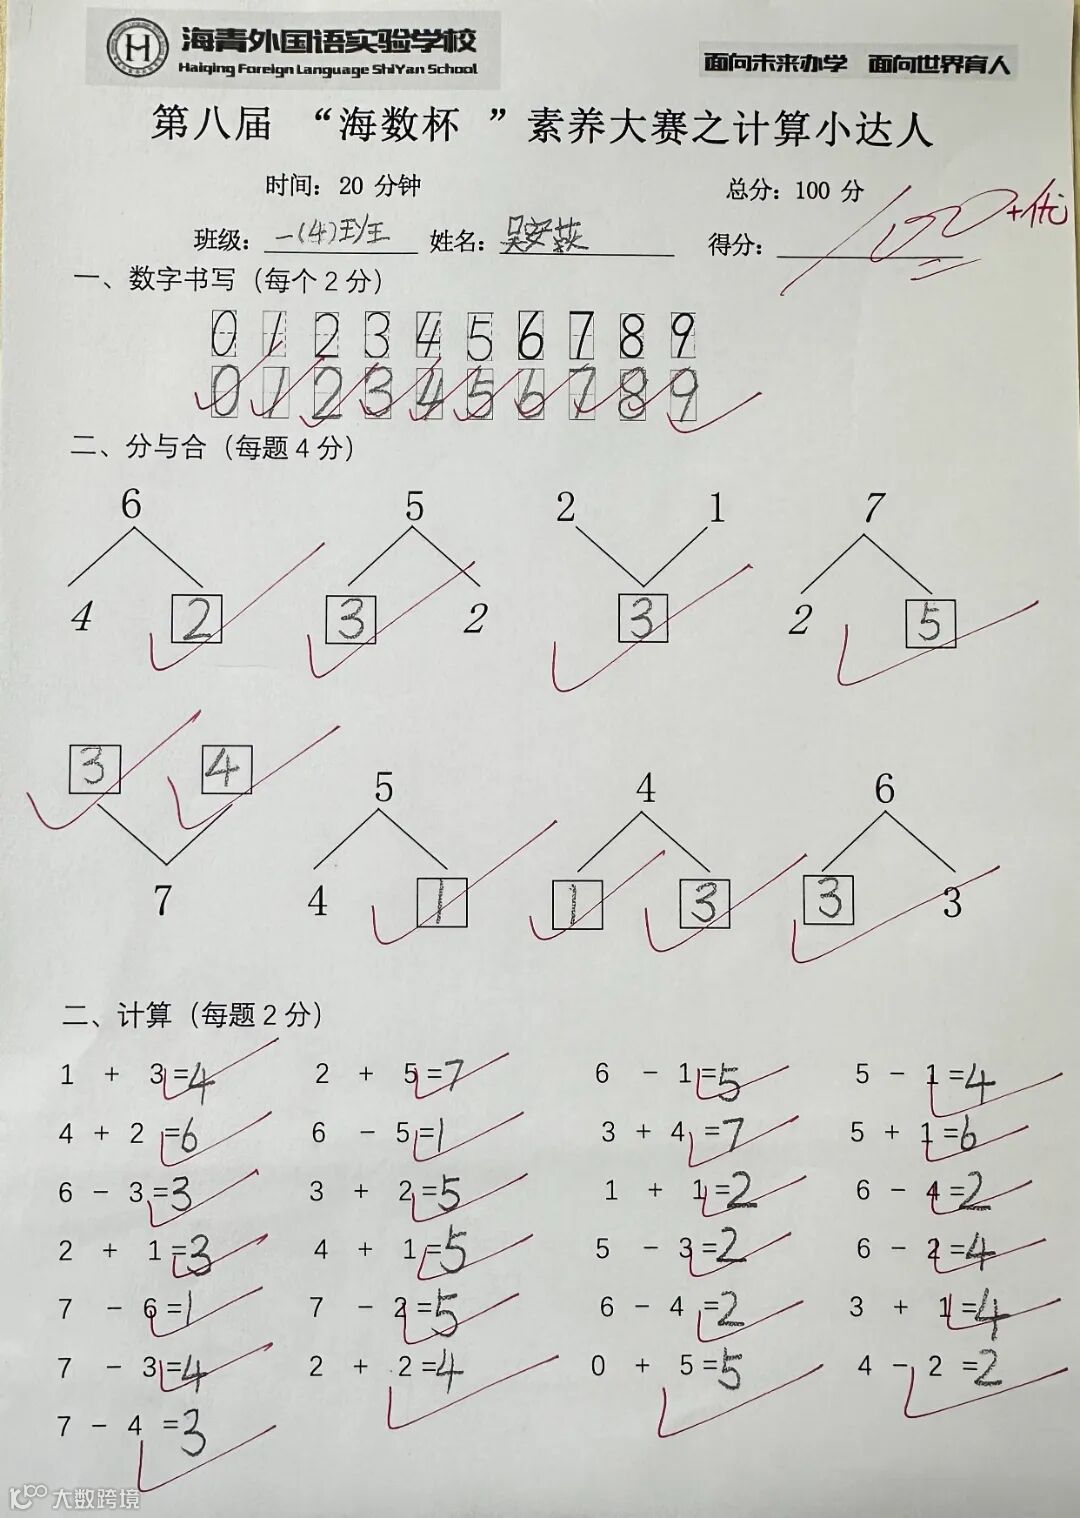 海青外国语实验学校
Haiqing Foreign Language ShiYan School
面向未来办学 面向世界育人
第八届 “海数杯 ”素养大赛之计算小达人
时间：20 分钟 总分：100 分
班级：一(4)班 姓名：吴 得分：100+优
一、数字书写（每个 2 分）
0 1 2 3 4 5 6 7 8 9
0 1 2 3 4 5 6 7 8 9
二、分与合（每题 4 分）
6 5 2 1 7
4 2 3 2 3 2 5
3 4 5 4 6
7 4 1 1 3 3 3
二、计算（每题 2 分）
1 + 3 =4 2 + 5 =7 6 - 1 =5 5 - 1 =4
4 + 2 =6 6 - 5 =1 3 + 4 =7 5 + 1 =6
6 - 3 =3 3 + 2 =5 1 + 1 =2 6 - 4 =2
2 + 1 =3 4 + 1 =5 5 - 3 =2 6 - 2 =4
7 - 6 =1 7 - 2 =5 6 - 4 =2 3 + 1 =4
7 - 3 =4 2 + 2 =4 0 + 5 =5 4 - 2 =2
7 - 4 =3
大数跨境